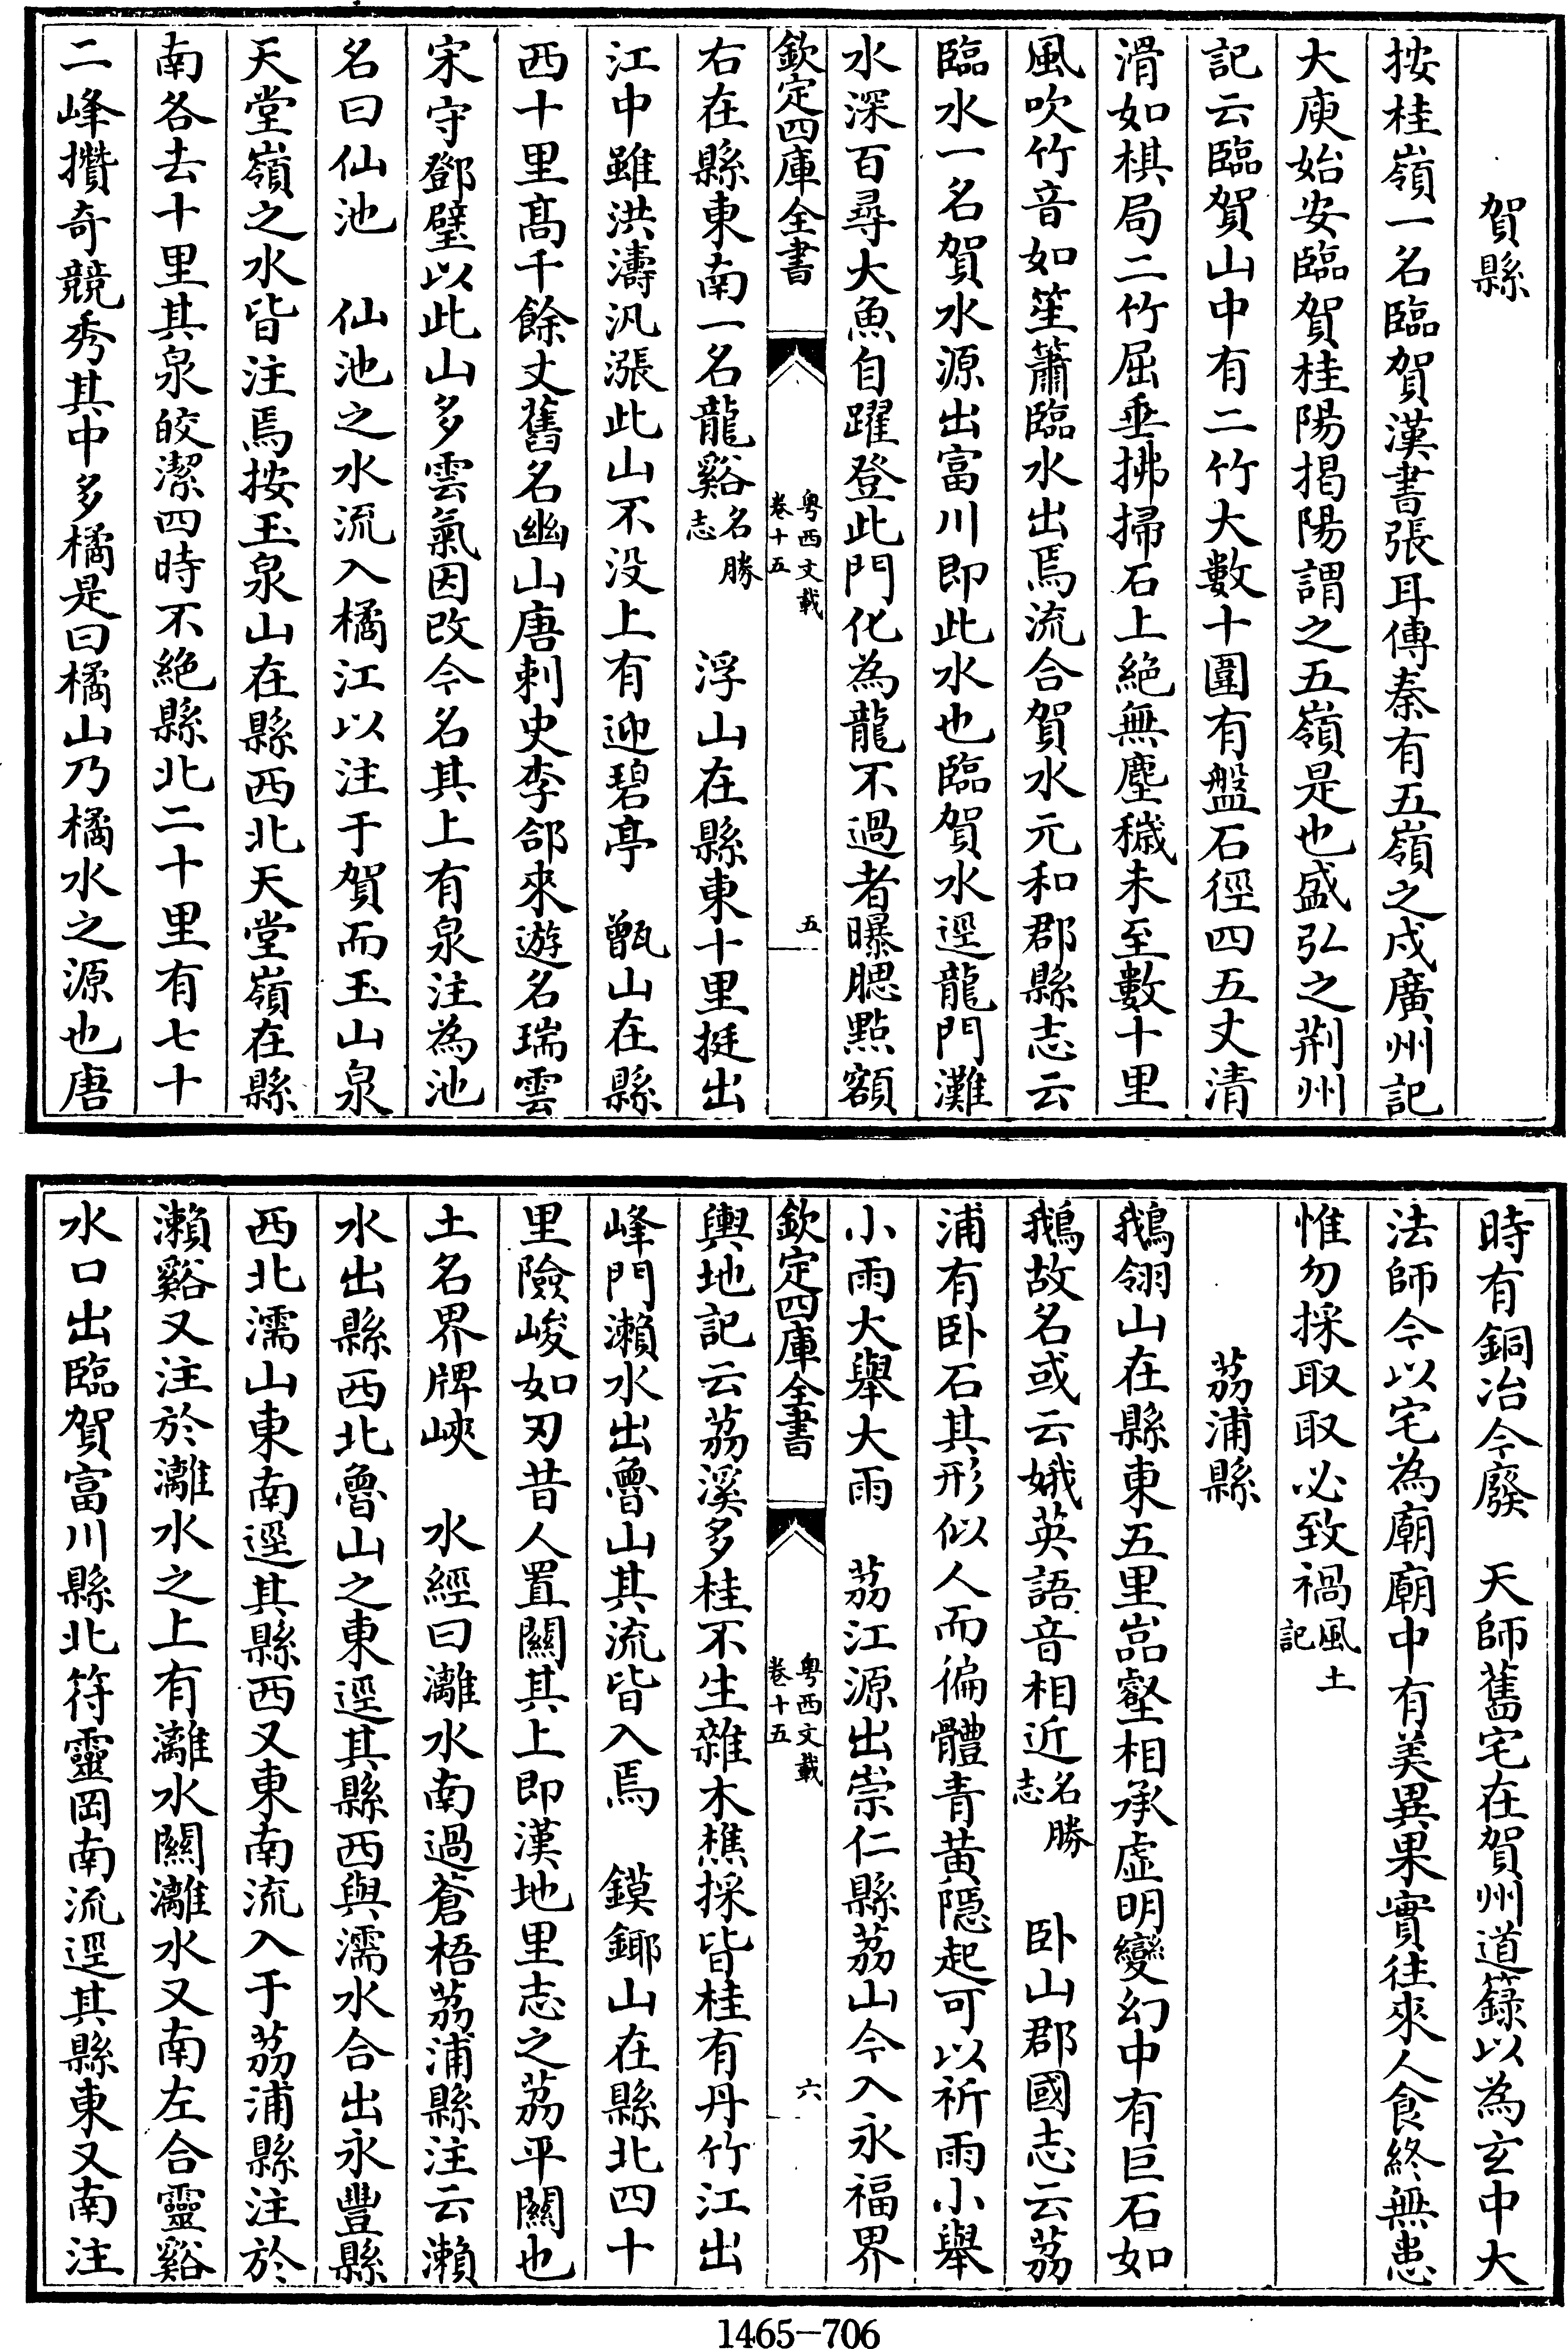 賀縣
按桂嶺一名臨賀漢書張耳傳秦有五嶺之戍廣州記
大庾始安臨賀桂陽揭陽謂之五嶺是也盛弘之荆州
記云臨賀山中有二竹大數十圍有盤石徑四五丈清
滑如棋局二竹屈垂拂掃石上絕無塵穢未至數十里
風吹竹音如笙簫臨水出焉流合賀水元和郡縣志云
臨水一名賀水源出富川即此水也臨賀水逕龍門灘
水深百尋大魚自躍登此門化為龍不過者曝腮㸃額
欽定四庫全書
粤西文載
卷十五
五
右在縣東南一名龍谿名勝志 浮山在縣東十里挺出
江中雖洪濤汎漲此山不没上有迎碧亭 甑山在縣
西十里髙千餘丈舊名幽山唐刺史李郃來遊名瑞雲
宋守鄧壁以此山多雲氣因改今名其上有泉注為池
名曰仙池 仙池之水流入橘江以注于賀而玉山泉
天堂嶺之水皆注焉按玉泉山在縣西北天堂嶺在縣
南各去十里其泉皎潔四時不絕縣北二十里有七十
二峰攢奇競秀其中多橘是曰橘山乃橘水之源也唐
時有銅冶今廢 天師舊宅在賀州道籙以為玄中大
法師今以宅為廟廟中有美異果實往來人食終無患
惟勿採取取必致禍風土記
荔浦縣
鵝翎山在縣東五里嵓壑相承虛明變幻中有巨石如
鵝故名或云娥英語音相近名勝志 卧山郡國志云荔
浦有卧石其形似人而徧體青黄隱起可以祈雨小舉
小雨大舉大雨 荔江源出崇仁縣荔山今入永福界
欽定四庫全書
粤西文載
卷十五
六
輿地記云荔溪多桂不生雜木樵採皆桂有丹竹江出
峰門瀨水出魯山其流皆入焉 鏌鎁山在縣北四十
里險峻如刃昔人置關其上即漢地里志之荔平關也
土名界牌峽 水經曰灕水南過蒼梧荔浦縣注云瀨
水出縣西北魯山之東逕其縣西與濡水合出永豐縣
西北濡山東南逕其縣西又東南流入于荔浦縣注於
瀨谿又注於灕水之上有灕水關灕水又南左合靈谿
水口出臨賀富川縣北符靈岡南流逕其縣東又南注
1465-706